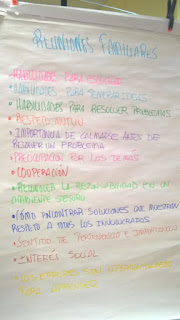 REUNIONES FAMILIARES
• HABILIDADES PARA ESCUCHAR
• HABILIDADES PARA GENERAR IDEAS
• HABILIDADES PARA RESOLVER PROBLEMAS
• RESPETO MUTUO
• IMPORTANCIA DE CALMARSE ANTES DE
RESOLVER UN PROBLEMA
• PREOCUPACIÓN POR LOS DEMÁS
• COOPERACIÓN
• RECONOCER LA RESPONSABILIDAD EN UN
AMBIENTE SEGURO
• CÓMO ENCONTRAR SOLUCIONES QUE MUESTREN
RESPETO A TODOS LOS INVOLUCRADOS
• SENTIDO DE PERTENENCIA E IMPORTANCIA
• INTERÉS SOCIAL
• LOS ERRORES SON OPORTUNIDADES
PARA APRENDER